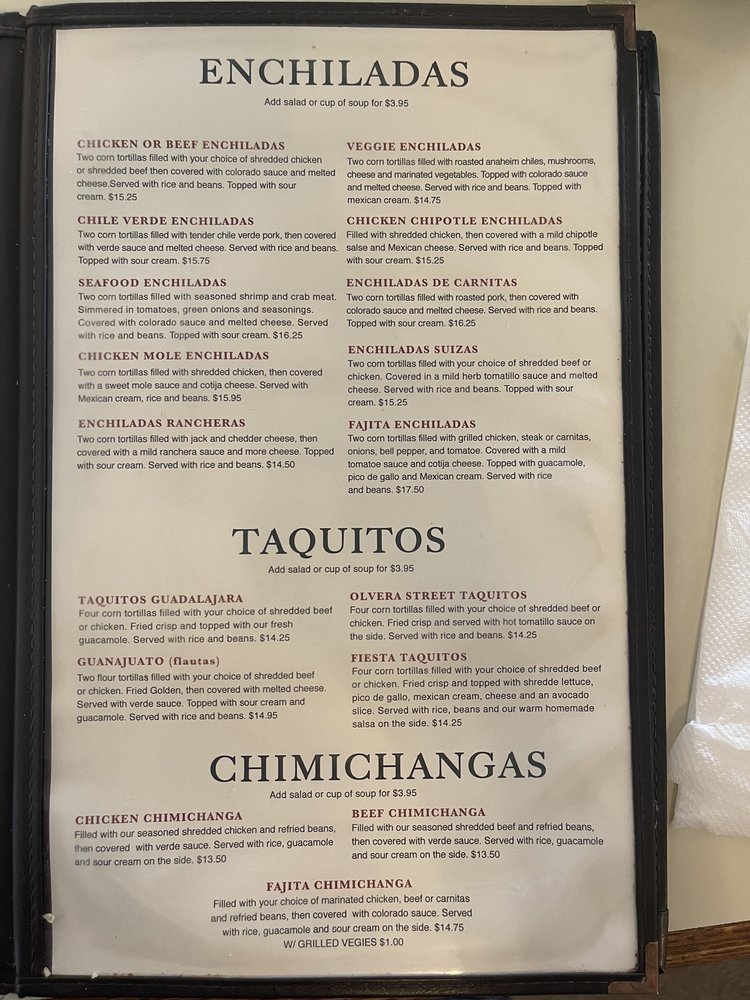 ENCHILADAS
Add salad or cup of soup for $3.95
CHICKEN OR BEEF ENCHILADAS
Two corn tortillas filled with your choice of shredded chicken
or shredded beef then covered with colorado sauce and melted
cheese.Served with rice and beans. Topped with sour
cream. $15.25
CHILE VERDE ENCHILADAS
Two corn tortillas filled with tender chile verde pork, then covered
with verde sauce and melted cheese. Served with rice and beans.
Topped with sour cream. $15.75
SEAFOOD ENCHILADAS
Two corn tortillas filled with seasoned shrimp and crab meat.
Simmered in tomatoes, green onions and seasonings.
Covered with colorado sauce and melted cheese. Served
with rice and beans. Topped with sour cream. $16.25
CHICKEN MOLE ENCHILADAS
Two corn tortillas filled with shredded chicken, then covered
with a sweet mole sauce and cotija cheese. Served with
Mexican cream, rice and beans. $15.95
ENCHILADAS RANCHERAS
Two corn tortillas filled with jack and chedder cheese, then
covered with a mild ranchera sauce and more cheese. Topped
with sour cream. Served with rice and beans. $14.50
VEGGIE ENCHILADAS
Two corn tortillas filled with roasted anaheim chiles, mushrooms,
cheese and marinated vegetables. Topped with colorado sauce
and melted cheese. Served with rice and beans. Topped with
mexican cream. $14.75
CHICKEN CHIPOTLE ENCHILADAS
Filled with shredded chicken, then covered with a mild chipotle
salse and Mexican cheese. Served with rice and beans. Topped
with sour cream. $15.25
ENCHILADAS DE CARNITAS
Two corn tortillas filled with roasted pork, then covered with
colorado sauce and melted cheese. Served with rice and beans.
Topped with sour cream. $16.25
ENCHILADAS SUIZAS
Two corn tortillas filled with your choice of shredded beef or
chicken. Covered in a mild herb tomatillo sauce and melted
cheese. Served with rice and beans. Topped with sour
cream. $15.25
FAJITA ENCHILADAS
Two corn tortillas filled with grilled chicken, steak or carnitas,
onions, bell pepper, and tomatoe. Covered with a mild
tomatoe sauce and cotija cheese. Topped with guacamole,
pico de gallo and Mexican cream. Served with rice
and beans. $17.50
TAQUITOS
Add salad or cup of soup for $3.95
TAQUITOS GUADALAJARA
Four corn tortillas filled with your choice of shredded beef
or chicken. Fried crisp and topped with our fresh
guacamole. Served with rice and beans. $14.25
GUANAJUATO (flautas)
Two flour tortillas filled with your choice of shredded beef
or chicken. Fried Golden, then covered with melted cheese.
Served with verde sauce. Topped with sour cream and
guacamole. Served with rice and beans. $14.95
OLVERA STREET TAQUITOS
Four corn tortillas filled with your choice of shredded beef or
chicken. Fried crisp and served with hot tomatillo sauce on
the side. Served with rice and beans. $14.25
FIESTA TAQUITOS
Four corn tortillas filled with your choice of shredded beef
or chicken. Fried crisp and topped with shredde lettuce,
pico de gallo, mexican cream, cheese and an avocado
slice. Served with rice, beans and our warm homemade
salsa on the side. $14.25
CHIMICHANGAS
Add salad or cup of soup for $3.95
CHICKEN CHIMICHANGA
Filled with our seasoned shredded chicken and refried beans,
then covered with verde sauce. Served with rice, guacamole
and sour cream on the side. $13.50
BEEF CHIMICHANGA
Filled with our seasoned shredded beef and refried beans,
then covered with verde sauce. Served with rice, guacamole
and sour cream on the side. $13.50
FAJITA CHIMICHANGA
Filled with your choice of marinated chicken, beef or carnitas
and refried beans, then covered with colorado sauce. Served
with rice, guacamole and sour cream on the side. $14.75
W/ GRILLED VEGIES $1.00